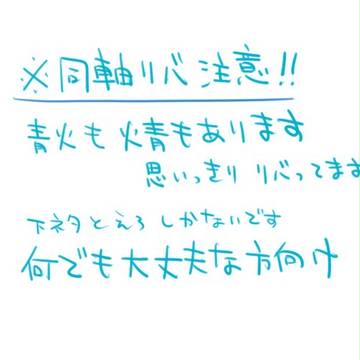 ※同軸リバ注意!!
青火も火青もあります
思いっきりリバってます
下ネタとえろしかないです
何でも大丈夫な方向け